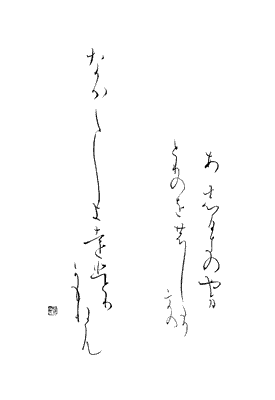 あしひきのやま
とりのをのしたり
をの
なか〱しよをひとり
かもねん